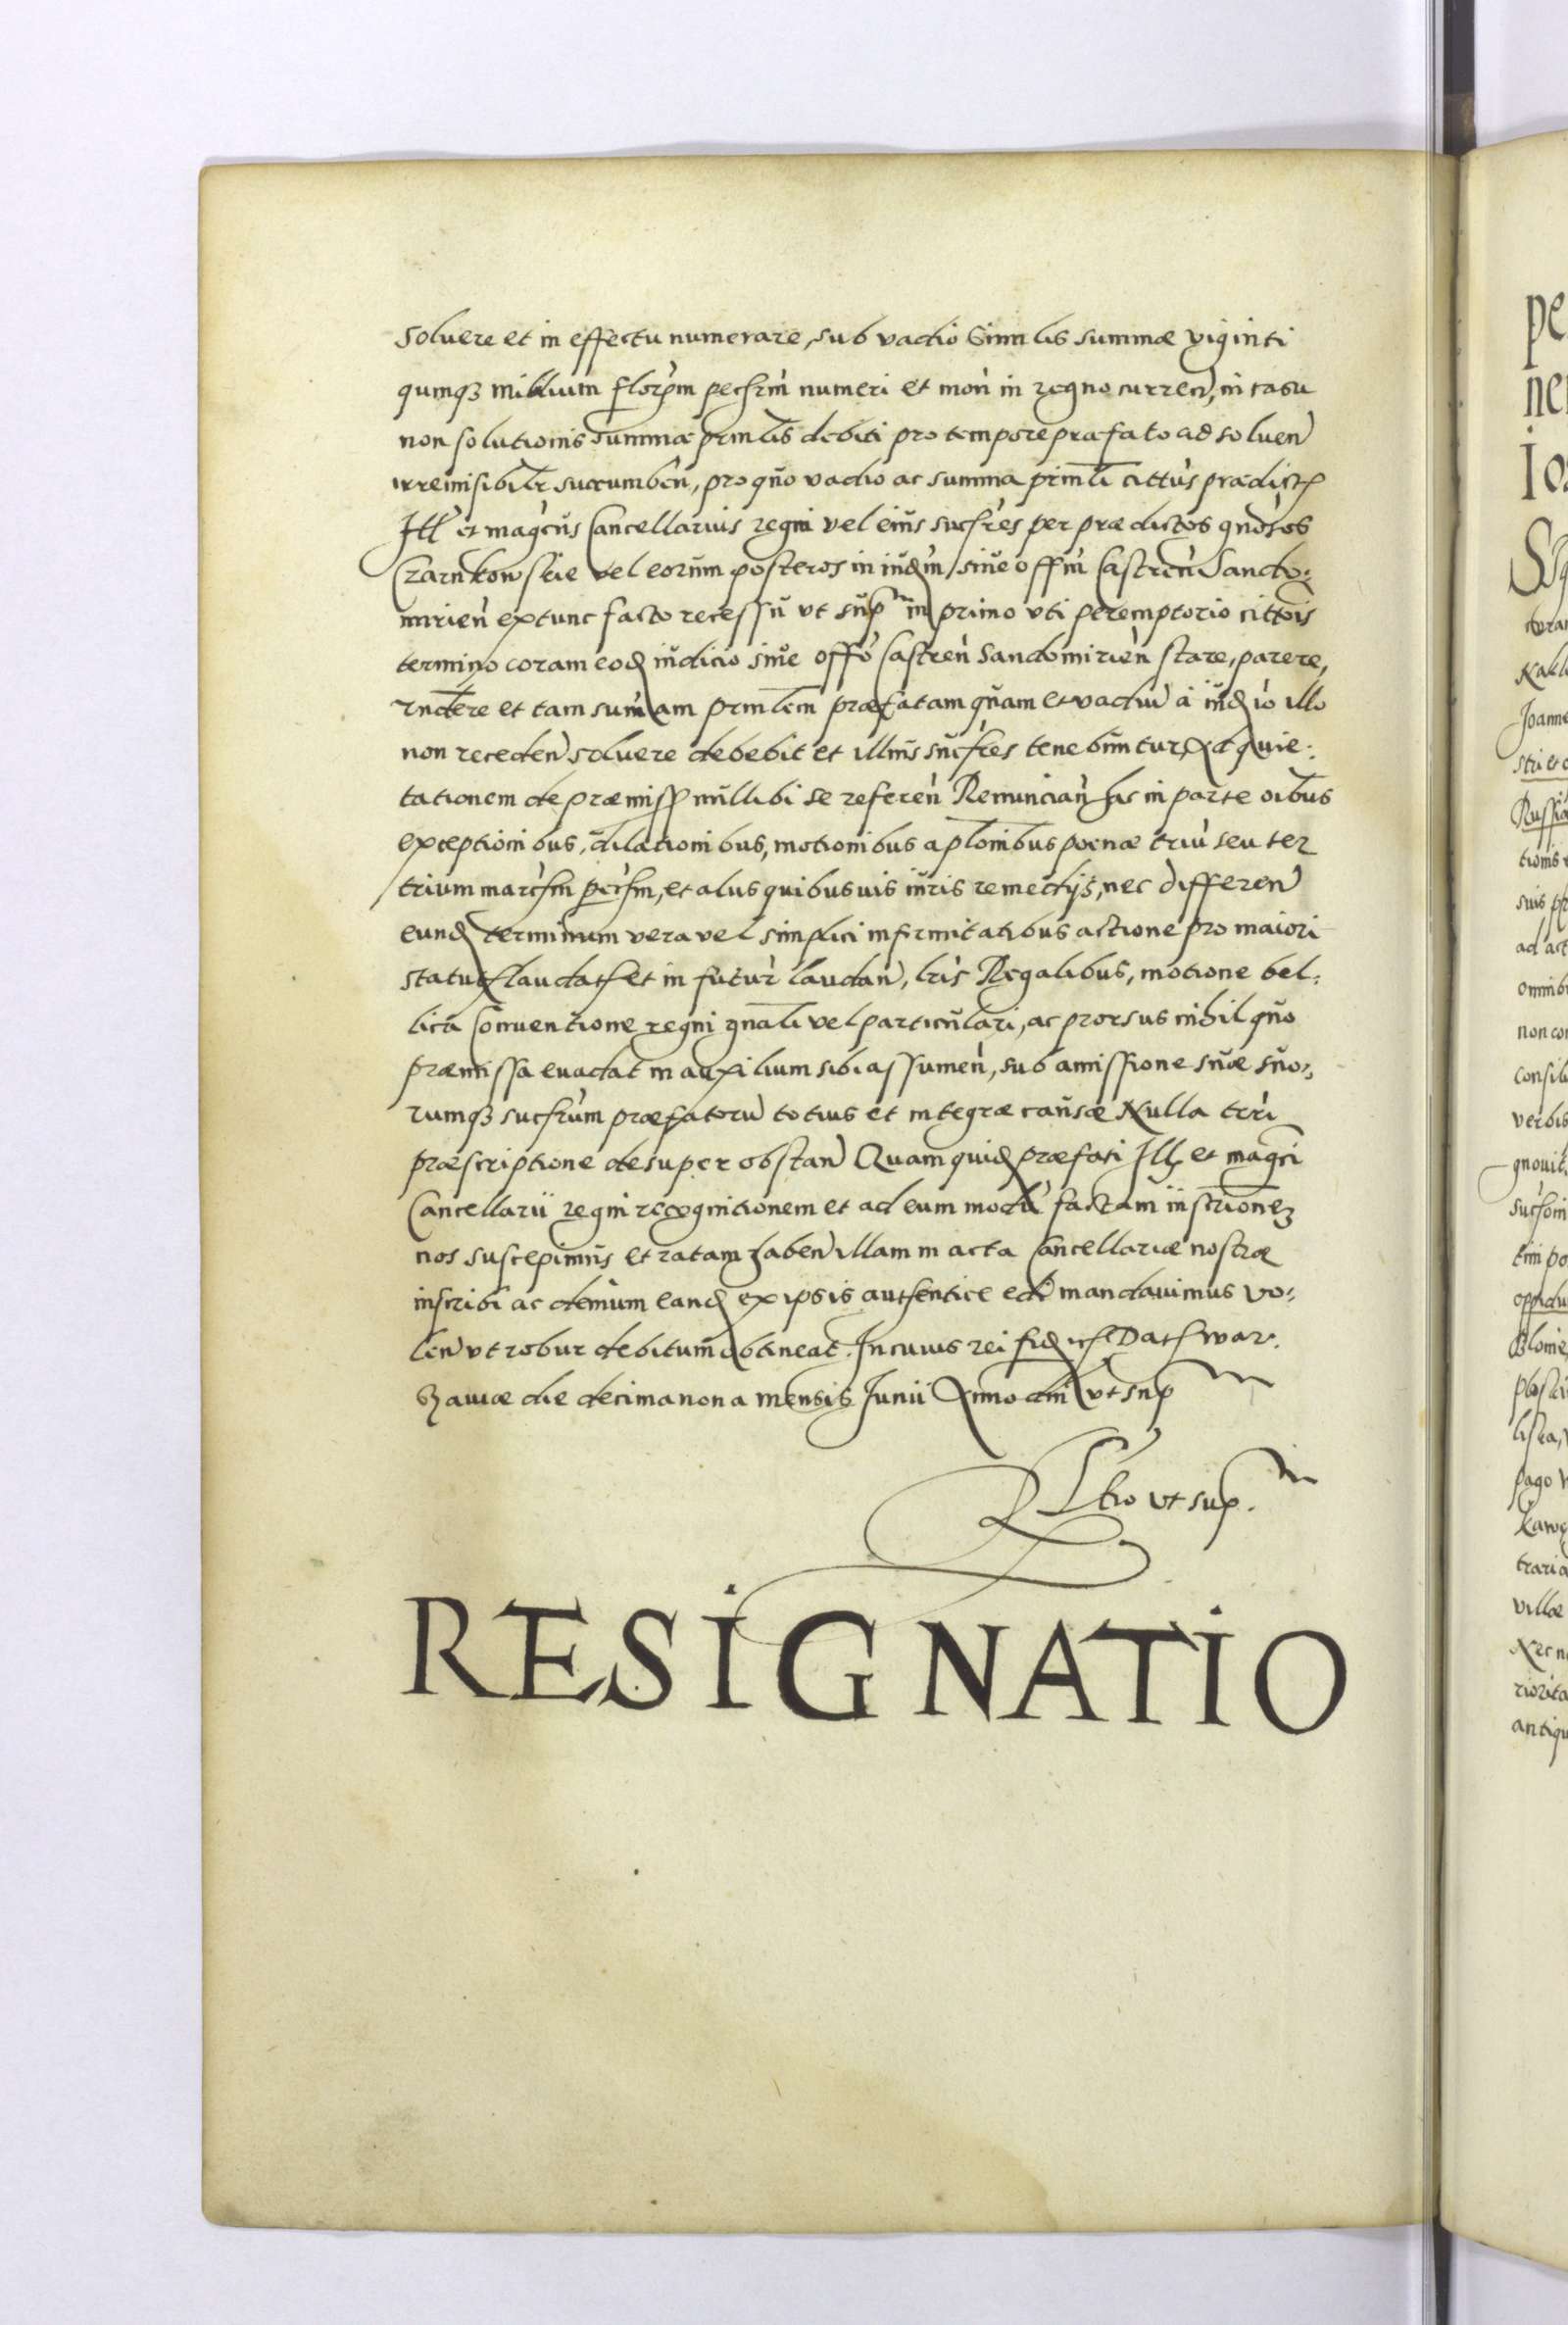 Soluere et in effectu numerare, sub vadio Similis summæ viginti
quinqꝫ millium florm pechrm numeri et mon in regno curren, in casu
non solutionis summæ prinlis debiti pro tempore præfato ad soluen
irremisibilr succumben, pro quo vadio ac summa prinli cittus prædict
Ill et magcus Cancellarius regni vel eius sucfres per prædictos gnosos
Czarnkowscie vel eorum posteros in iudm siue offm Castren Sando:
mirien extunc facto recessu vt sup in primo vti peremptorio cittois
termino coram eod iudicio siue offo Castren Sandomirien stare, parere,
rndere et tam sumam prinlem præfatam quam et vadiu à iudio illo
non receden soluere debebit et illius sucfres tenebuntur, Ad quie:
tationem de præmiss nullibi se referen Renuncian hac in parte oibus
exceptionibus, dilationibus, motionibus aplonibus pœnæ triu seu ter
trium marchm pechm, et alijs quibusuis iuris remedijs, nec differen
eund terminum vera vel simplici infirmitatibus actione pro maiori
statut laudat et in futur laudan, lris Regalibus, motione bel:
lica Conuentione regni gnali vel particulari, ac prorsus nihil quo
præmissa euadat in auxilium sibi assumen, sub amissione suæ suo:
rumqꝫ sucfrum præfatoru totius et integræ causæ Nulla trri
præscriptione desuper obstan Quam quid præfati Ill et magci
Cancellarii regni recognitionem et ad eum modu factam inscrionem
nos suscepimus et ratam haben illam in acta Cancellariæ nostræ
inscribi ac demum eand ex ipsis authentice edi mandauimus vo:
len vt robur debitum obtineat. In cuius rei fid etc Dat War:
szauiæ die decima nona mensis Junii Anno dni vt sup
Rltio vt sup.
RESIGNATIO